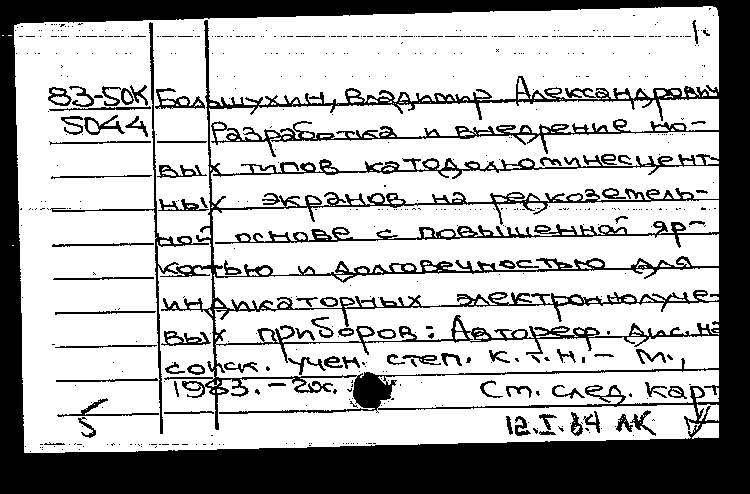 1.
83-50К Большухин, Владимир Александрович
5044 Разработка и внедрение но-
вых типов катодолюминесцент-
ных экранов на редкоземель-
ной основе с повышенной яр-
костью и долговечностью для
индикаторных электроннолуче-
вых приборов: Автореф. дис. на
соиск. учен. степ. к.т.н. – М.,
1983. – 20с. См. след. карт
5 12.I.84 ЛК